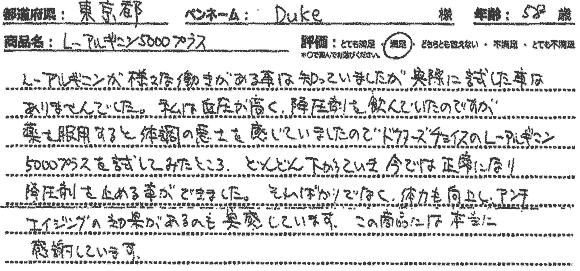 都道府県： 東京都 ペンネーム： Duke 様 年齢： 58 歳
商品名： L-アルギニン5000プラス 評価： とても満足 ・ 満足 ・ どちらとも言えない ・ 不満足 ・ とても不満足
※○で囲んでお選びください。
L-アルギニンが様々な働きがある事は知っていましたが実際に試した事は
ありませんでした。私は血圧が高く、降圧剤を飲んでいたのですが
薬を服用すると体調の悪さを感じていましたのでドクターズチョイスのL-アルギニン
5000プラスを試してみたところ、どんどん下がっていき今では正常になり
降圧剤を止める事ができました。そればかりでなく、体力も向上し、アンチ
エイジングの効果があるのも実感しています。この商品には本当に
感謝しています。